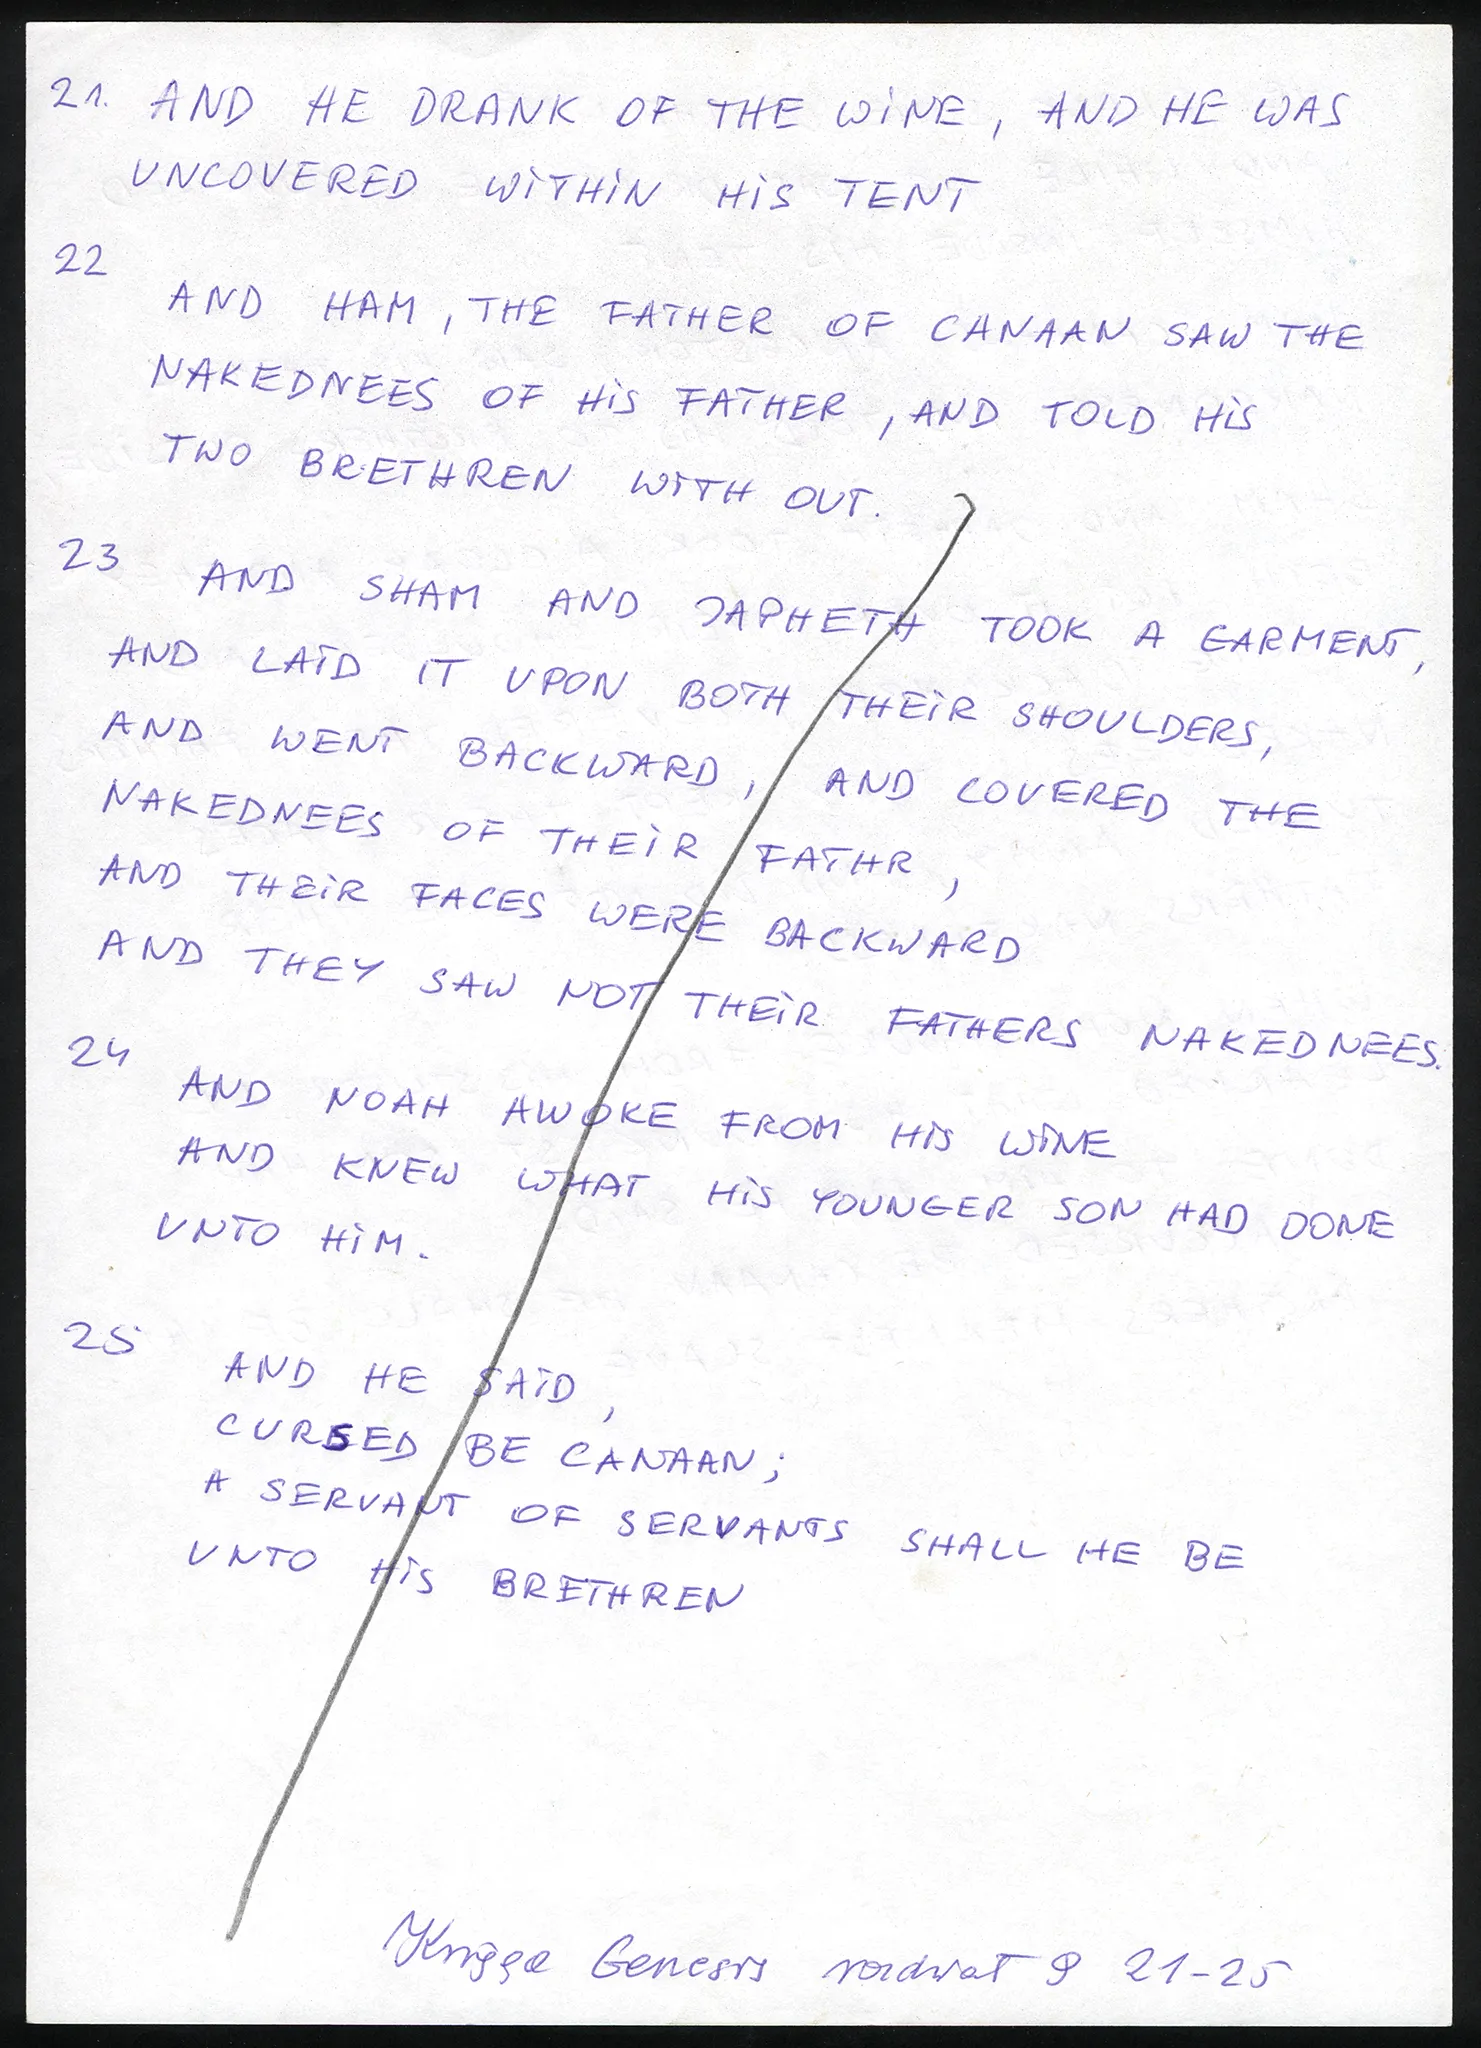 21. AND HE DRANK OF THE WINE, AND HE WAS
UNCOVERED WITHIN HIS TENT
22
AND HAM, THE FATHER OF CANAAN SAW THE
NAKEDNEES OF HIS FATHER, AND TOLD HIS
TWO BRETHREN WITH OUT.
23 AND SHAM AND JAPHETH TOOK A GARMENT,
AND LAID IT UPON BOTH THEIR SHOULDERS,
AND WENT BACKWARD, AND COVERED THE
NAKEDNEES OF THEIR FATHR,
AND THEIR FACES WERE BACKWARD
AND THEY SAW NOT THEIR FATHERS NAKEDNEES.
24 AND NOAH AWOKE FROM HIS WINE
AND KNEW WHAT HIS YOUNGER SON HAD DONE
UNTO HIM.
25
AND HE SAID,
CURSED BE CANAAN;
A SERVANT OF SERVANTS SHALL HE BE
UNTO HIS BRETHREN
Genesis 9 21-25